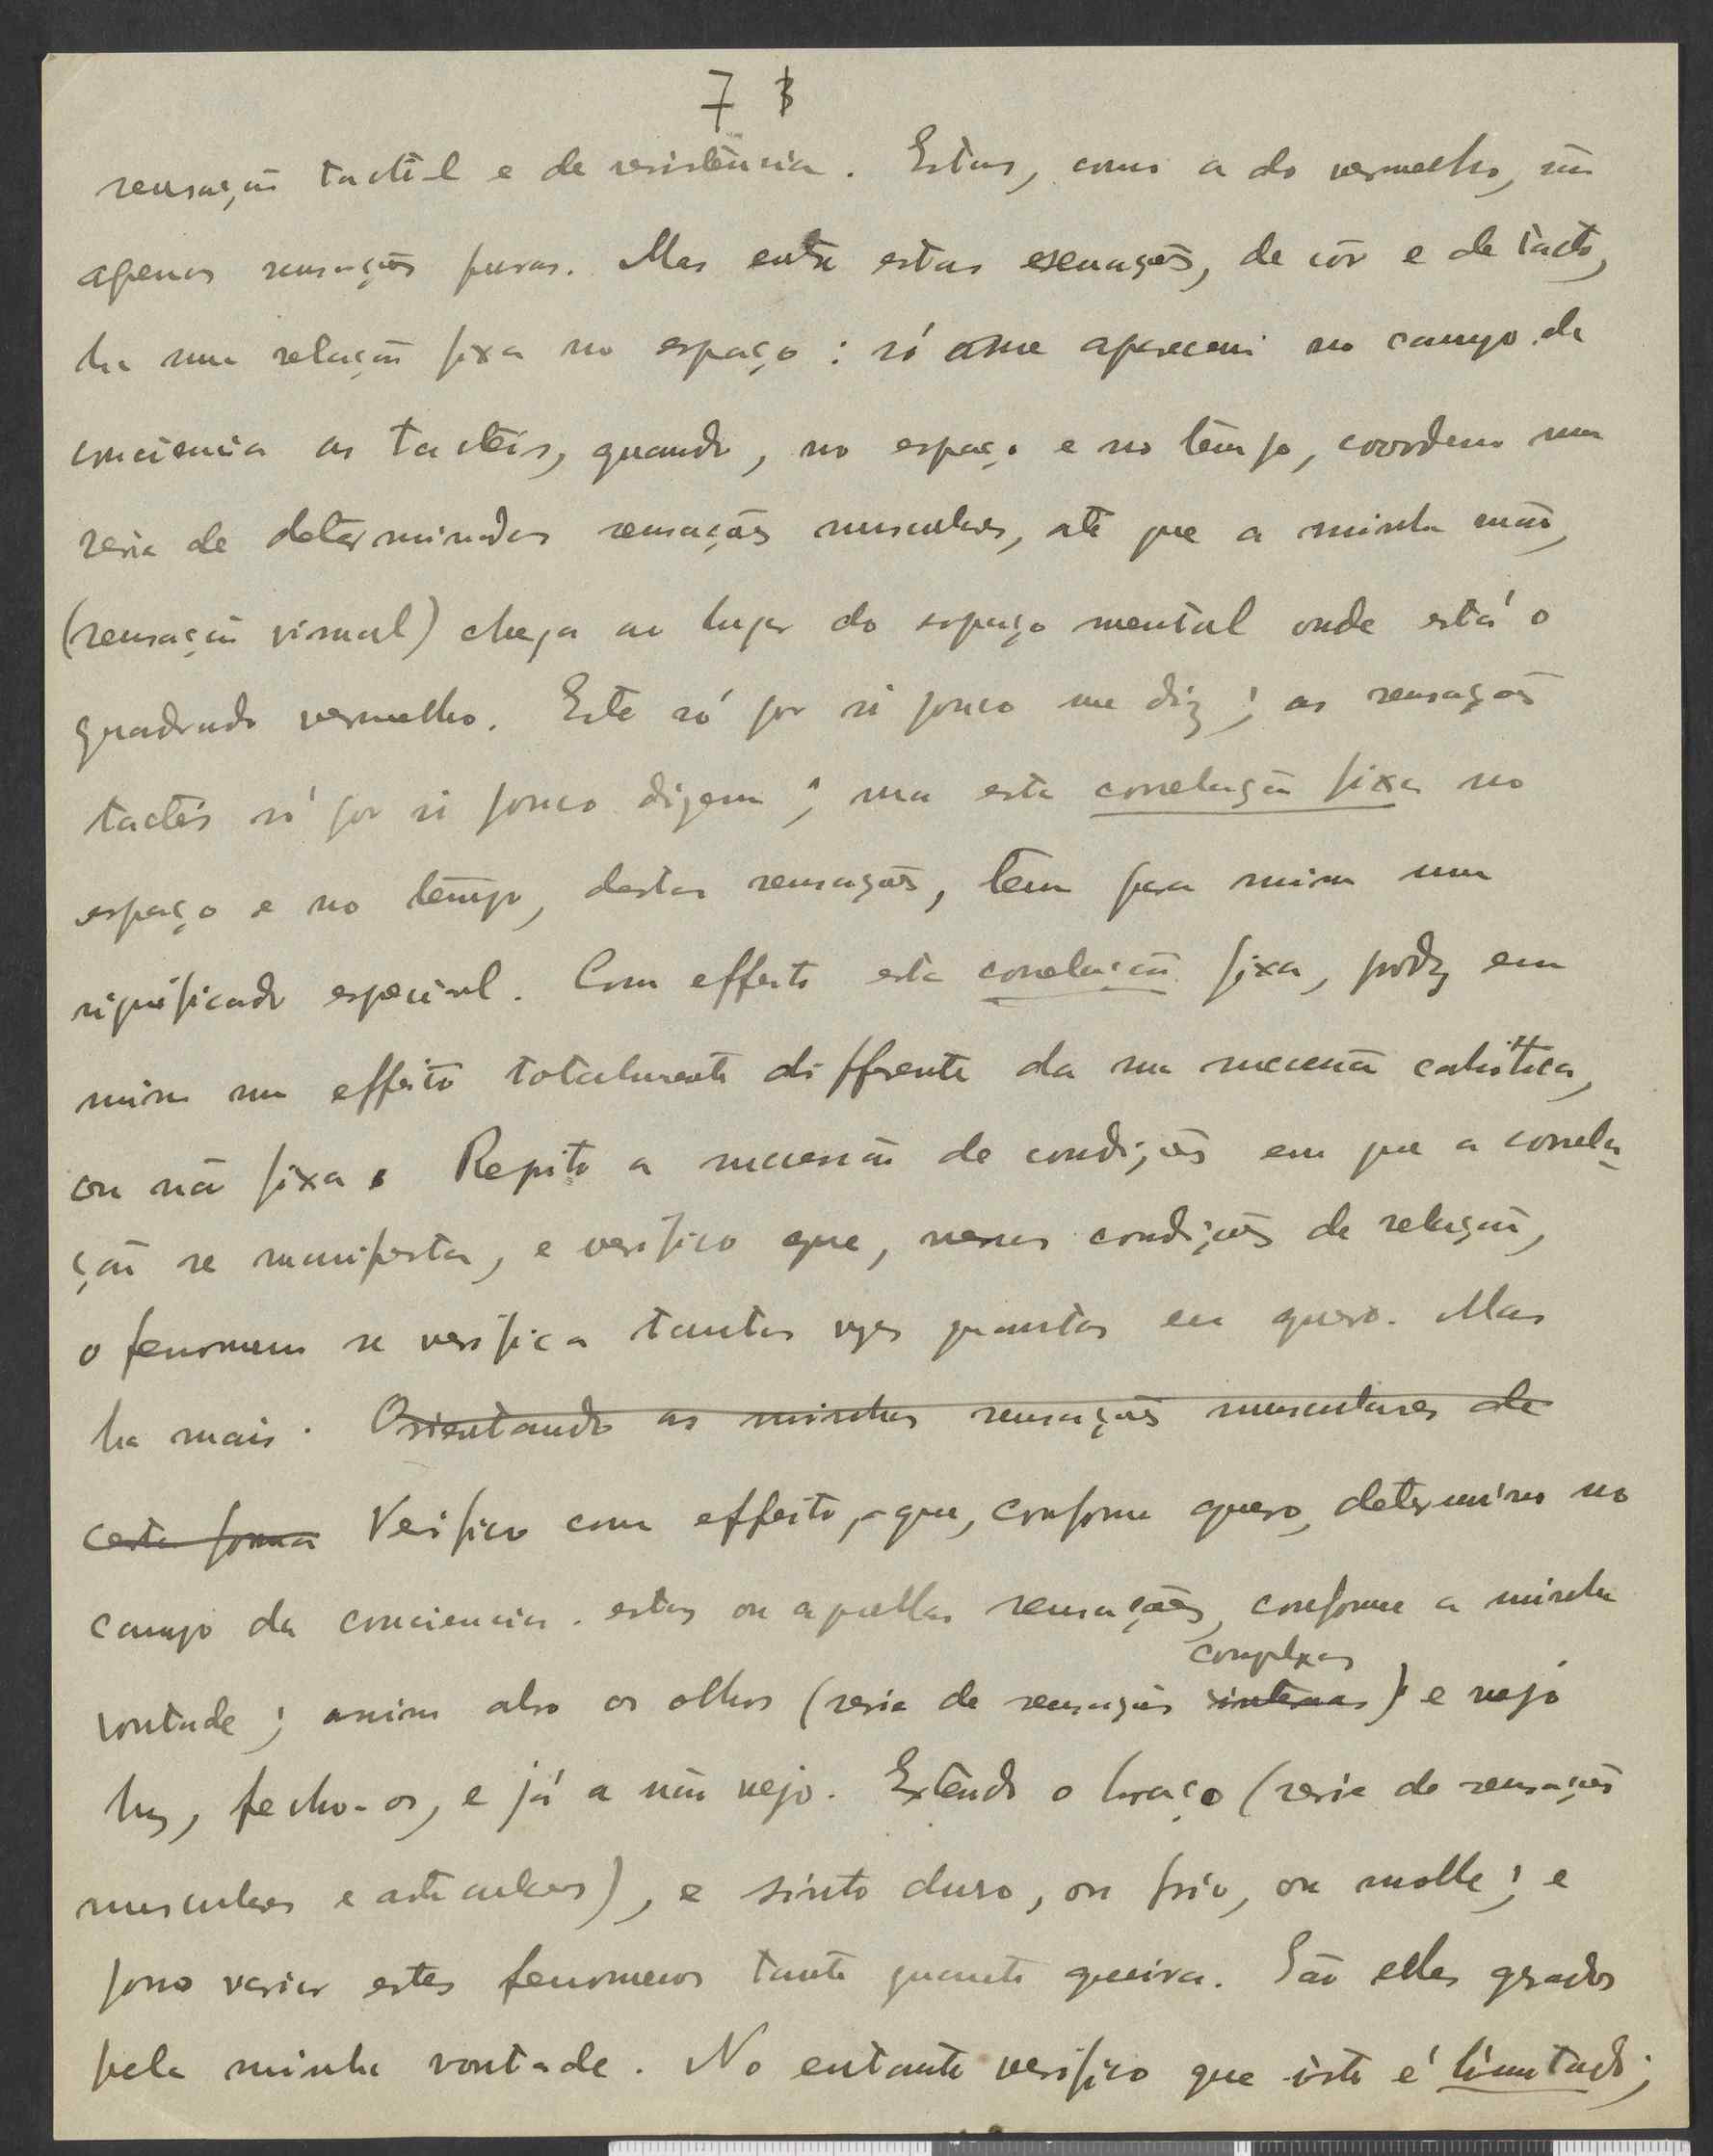 7
sensação tactil e de resistencia. Estas, como a do vermelho, são
apenas sensações puras. Mas entre estas sensações, de côr e de tacto,
ha uma relação fixa no espaço: só me aparecem no campo da
conciencia as tacteis, quando, no espaço e no tempo, coordeno uma
serie de determinadas sensações musculares, até que a minha mão,
(sensação visual) chega ao lugar do espaço mental onde está o
quadrado vermelho. Este só por si pouco me diz; as sensações
tacteis só por si pouco dizem; mas esta correlação fixa no
espaço e no tempo, destas sensações, tem para mim um
significado especial. Com effeito esta correlação fixa, produz em
mim um effeito totalmente differente da sucessão
ou não fixa. Repito a sucessão de condições em que a correla-
ção se manifesta, e verifico que, nessas condições de relação,
o fenomeno se verifica tantas vezes quantas eu quero. Mas
ha mais. Orientando as minhas sensações musculares de
certa forma Verifico com effeito, que, conforme quero, determino no
campo da conciencia estas ou aquellas sensações, conforme a minha
complexas
vontade; assim abro os olhos (serie de sensações internas) e vejo
luz, fecho-os, e já a não vejo. Extendo o braço (serie de sensações
musculares e articulares), e sinto duro, ou frio, ou molle; e
posso variar estes fenomenos tanto quanto queira. São elles gerados
pela minha vontade. No entanto verifico que isto é limitado;